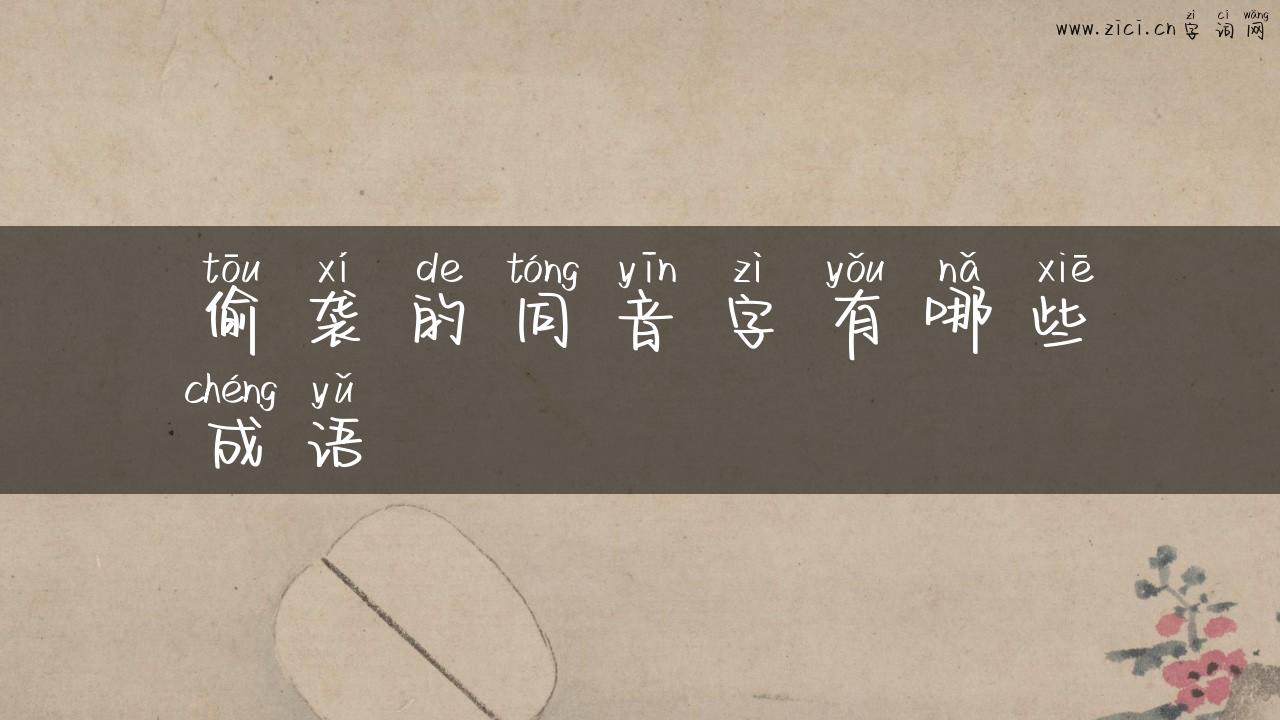 zì cí wǎng
www.zici.cn字词网
tōu xí de tóng yīn zì yǒu nǎ xiē
偷袭的同音字有哪些
chéng yǔ
成语